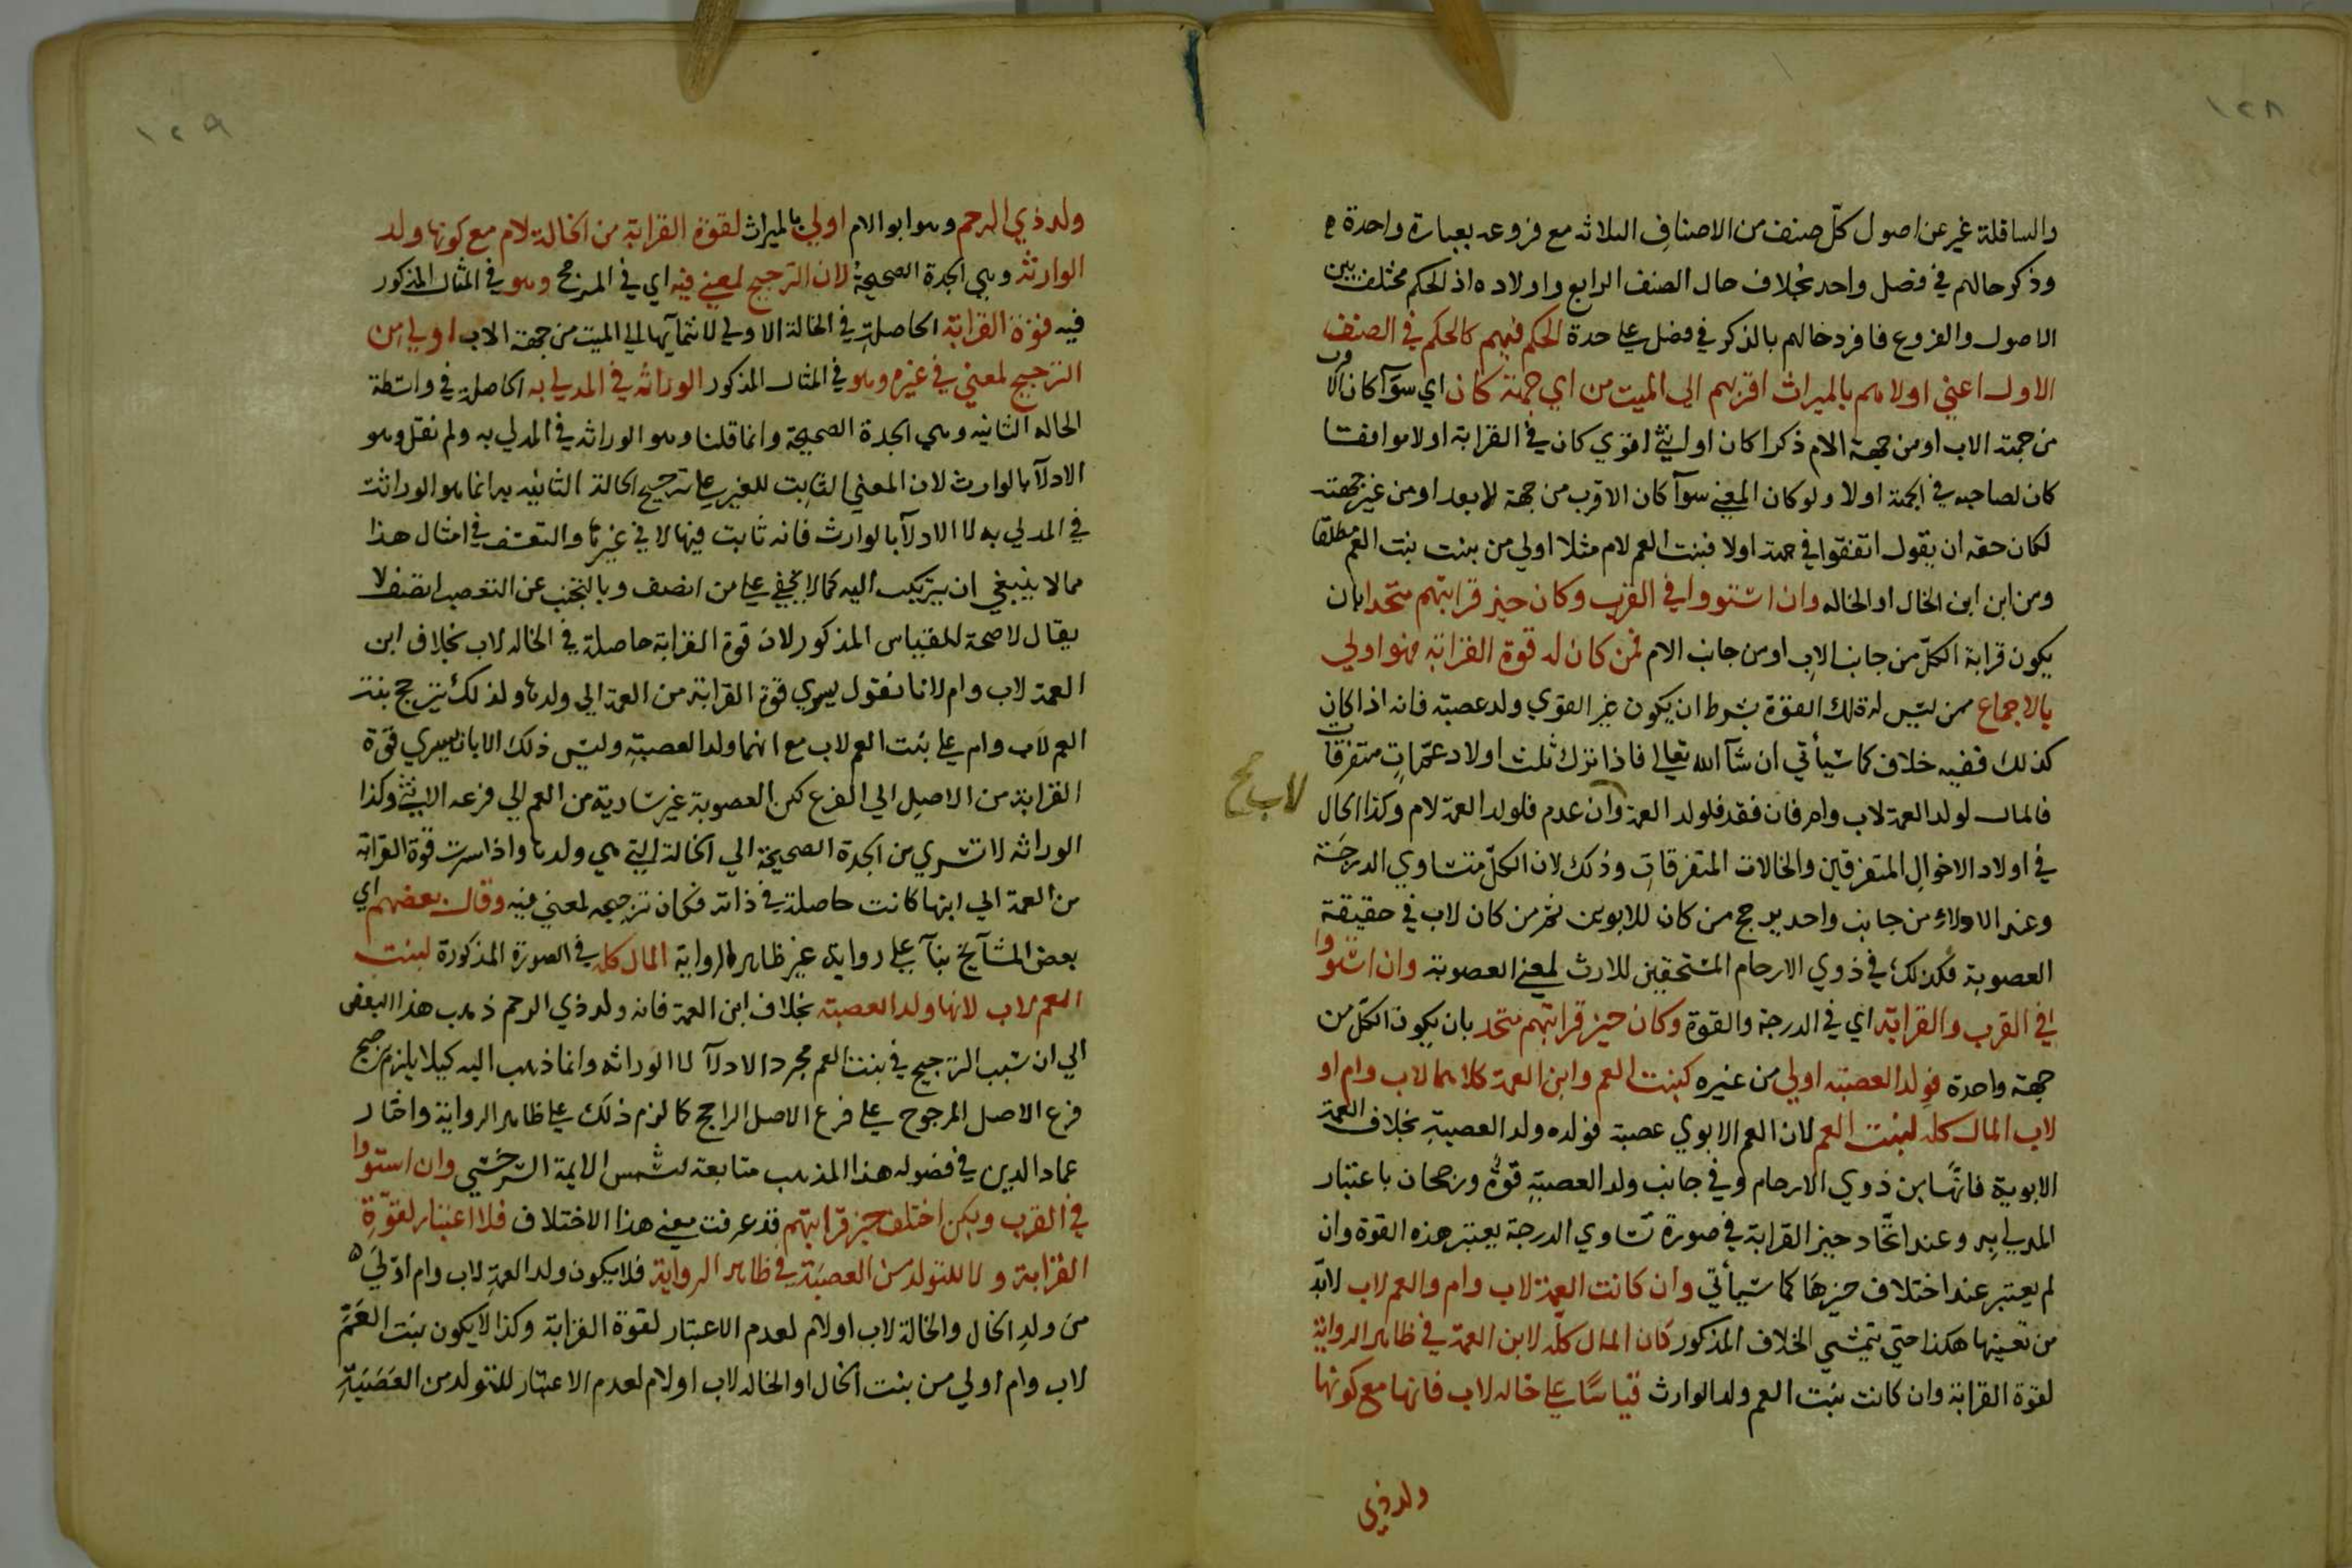 ١٢٨
والسافلة غير عن اصول كلّ صنف من الاصناف الثلاثه مع فروعه بعبارة واحدة
وذكر حالهم في فصل واحد بخلاف حال الصنف الرابع واولاده اذ الحكم مختلف بين
الاصول والفروع فافرد حالهم بالذكر في فصل علي حدة الحكم فيهم كالحكم في الصنف
الاول اعني اولاهم بالميراث اقربهم الي الميت من اي جهة كان اي سوآ كان الاقرب
من جهة الاب او من جهة الام ذكرا كان او انثي اقوي كان في القرابة او لا موافقا
كان لصاحبه في الجهة او لا ولو كان المعني سوآ كان الاقرب من جهة الابعد او من غير جهته
لكان حقه ان يقول اتفقوا في جهة اولا فبنت العم لام مثلا اولي من بنت بنت العم مطلقا
ومن ابن ابن الخال او الخاله وان استووا في القرب وكان حيز قرابتهم متحدا بان
يكون قرابة الكلّ من جانب الاب او من جانب الام فمن كان له قوة القرابة فهو اولي
بالاجماع ممن ليس له تلك القوة بشرط ان يكون غير القوي ولد عصبة فانه اذا كان
كذلك ففيه خلاف كما سيأتي ان شآ الله تعالي فاذا ترك ثلث اولاد عمّات متفرقات
فالمال لولد العمة لاب وام فان فقد فلولد العمة وان عدم فلولد العمة لام وكذا الحال
لاب صح
في اولاد الاخوال المتفرقين والخالات المتفرقات وذلك لان الكلّ متساوي الدرجة
وعند الادلاء من جانب واحد يرجح من كان للابوين ثم من كان لاب في حقيقة
العصوبة فكذلك في ذوي الارحام المستحقين للارث لمعني العصوبة وان استووا
في القرب والقرابة اي في الدرجة والقوة وكان حيز قرابتهم متحد بان يكون الكلّ من
جهة واحدة فولد العصبه اولي من غيره كبنت العم وابن العمة كلاهما لاب وام او
لاب المال كله لبنت العم لان العم الابوي عصبة فولده ولد العصبة بخلاف العمة
الابوية فانّها من ذوي الارحام وفي جانب ولد العصبة قوّة ورجحان باعتبار
المدلي به وعند اتّحاد حيز القرابة في صورة تساوي الدرجة يعتبر هذه القوة وان
لم يعتبر عند اختلاف حيزها كما سيأتي وان كانت العمة لاب وام والعم لاب لابدّ
من تعينها هكذا حتي يتمشي الخلاف المذكور كان المال كلّه لابن العمة في ظاهر الرواية
لقوة القرابة وان كانت بنت العم ولد الوارث قياسًا علي خاله لاب فانها مع كونها
ولد ذي
١٢٩
ولد ذي الرحم وهو ابو الام اولي بالميراث لقوة القرابة من الخالة لام مع كونها ولد
الوارثة وهي الجدة الصحيحة لان الترجيح لمعني فيه اي في المرجح وهو في المثال المذكور
فيه قوة القرابة الحاصلة في الخالة الاولي لانتمآيها الي الميت من جهة الاب اولي من
الترجيح لمعني في غيره وهو في المثال المذكور الوراثه في المدلي به الحاصلة في واسطة
الخاله الثانيه وهي الجدة الصحيحة وانما قلنا وهو الوراثه في المدلي به ولم نقل وهو
الادلآ بالوارث لان المعني الثابت للغير علي ترجيح الخالة الثانيه به انما هو الوراثة
في المدلي به لا الادلآ بالوارث فانه ثابت فيها لا في غيرها والتعسف في امثال هذا
مما لا ينبغي ان يرتكب اليه كما لا يخفي علي من انصف وبالتجنب عن التعصب اتصف لا
يقال لا صحة للقياس المذكور لان قوة القرابة حاصلة في الخاله لاب بخلاف ابن
العمة لاب وام لانا نقول يسري قوة القرابة من العمة الي ولدها ولذلك يترجح بنت
العم لاب وام علي بنت العم لاب مع انهما ولدا العصبة وليس ذلك الا بان يسري قوّة
القرابة من الاصل الي الفرع لكن العصوبة غير سارية من العم الي فرعه الانثي وكذا
الوراثه لا تسري من الجدة الصحيحة الي الخالة التي هي ولدها واذا سرت قوة القرابة
من العمة الي ابنها كانت حاصلة في ذاته فكان ترجيحه لمعني فيه وقال بعضهم اي
بعض المشآيخ بنآ علي رواية غير ظاهر الرواية المال كله في الصورة المذكورة لبنت
العم لاب لانها ولد العصبة بخلاف ابن العمة فانه ولد ذي الرحم ذهب هذا البعض
الي ان سبب الترجيح في بنت العم مجرد الادلآ لا الوراثه وانما ذهب اليه كيلا يلزم ترجيح
فرع الاصل المرجوح علي فرع الاصل الراجح كما لزم ذلك علي ظاهر الرواية واختار
عماد الدين في فصوله هذا المذهب متابعة لشمس الايمة السرخسي وان استووا
في القرب ولكن اختلف حيز قرابتهم قد عرفت معني هذا الاختلاف فلا اعتبار لقوّة
القرابة ولا للتولد من العصبة في ظاهر الرواية فلا يكون ولد العمة لاب وام اولي
من ولد الخال والخالة لاب او لام لعدم الاعتبار لقوة القرابة وكذا لا يكون بنت العمّ
لاب وام اولي من بنت الخال او الخاله لاب او لام لعدم الاعتبار للتولد من العصبة